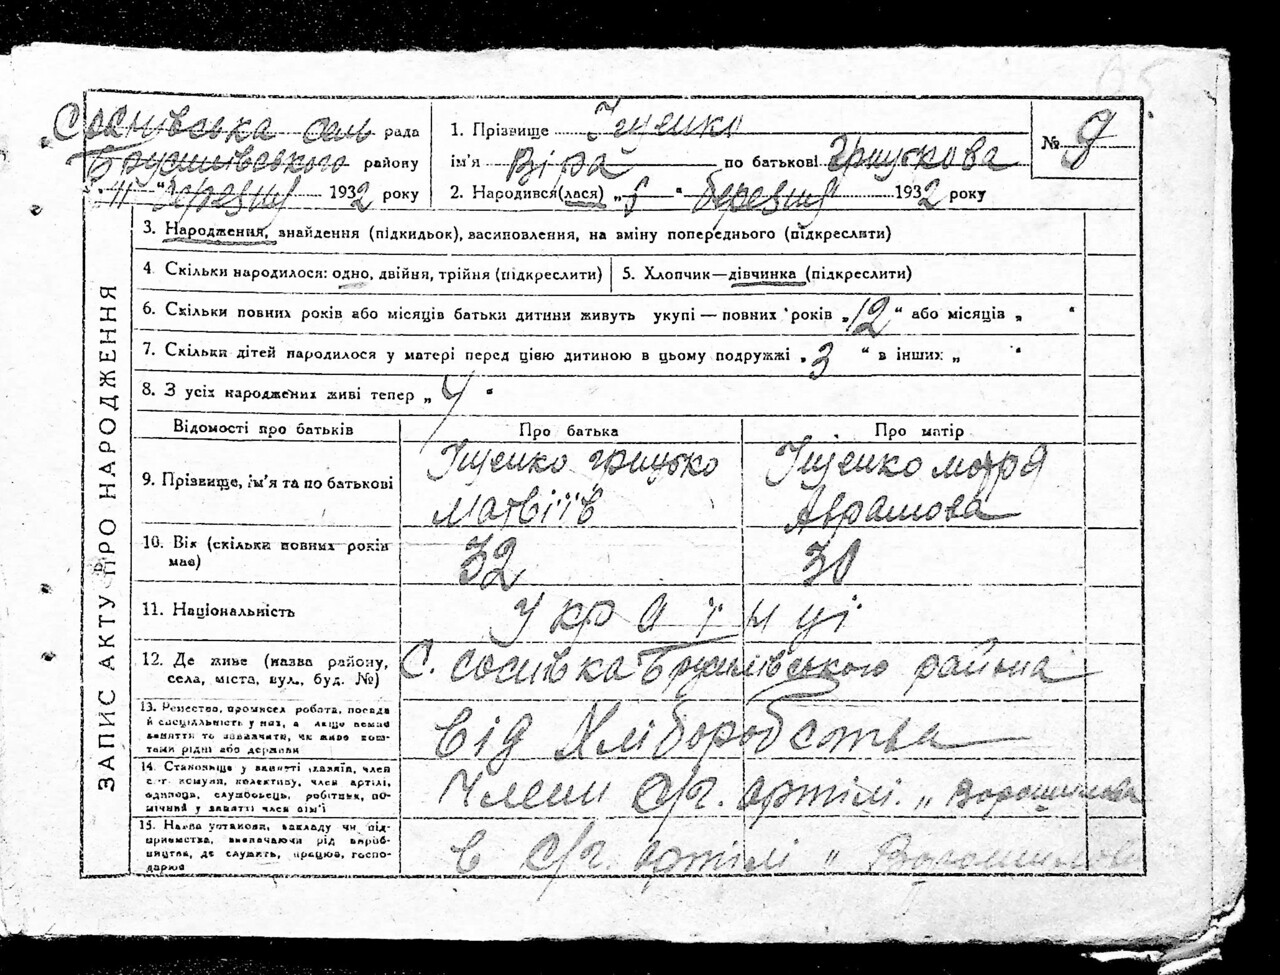 Соснівська сель рада
Брусилівського району
"11" березня 1932 року
1. Прізвище Іщенко
ім'я Віра по батькові Грицькова
2. Народився(лася) „ " березня 1932 року
№ 9
ЗАПИС АКТУ ПРО НАРОДЖЕННЯ
3. Народження, знайдення (підкидьок), васиновлення, на зміну попереднього (підкреслити)
4. Скільки народилося: одно, двійня, трійня (підкреслити)
5. Хлопчик—дівчинка (підкреслити)
6. Скільки повних років або місяців батьки дитини живуть укупі — повних років „12" або місяців „ "
7. Скільки дітей народилося у матері перед цією дитиною в цьому подружжі „3" в інших „ "
8. З усіх народжених живі тепер „4"
Відомості про батьків
Про батька
Про матір
9. Прізвище, ім'я та по батькові
Іщенко Грицько
Матвіїв
Іщенко Мотря
Аврамова
10. Вік (скільки повних років
має)
32
30
11. Національність
Українці
12. Де живе (назва району,
села, міста, вул., буд. №)
С. Соснівка Брусилівського района
13. Ремество, промисел, робота, посада
й спеціяльність у них, а якщо немає
заняття то зазначити, чи живе кош-
тами рідні або держави
від Хліборобства
14. Становище у занятті (хазяїн, член
с.-г. комуни, колективу, член артілі,
одинець, службовець, робітник, по-
мічний у занятті член сім'ї
Члени С/г. артілі. „Ворошилова
15. Назва установи, закладу чи під-
приємства, визначаючи рід вироб-
ництва, де служить, працює, госпо-
дарює
в С/г. артілі „Ворошилова